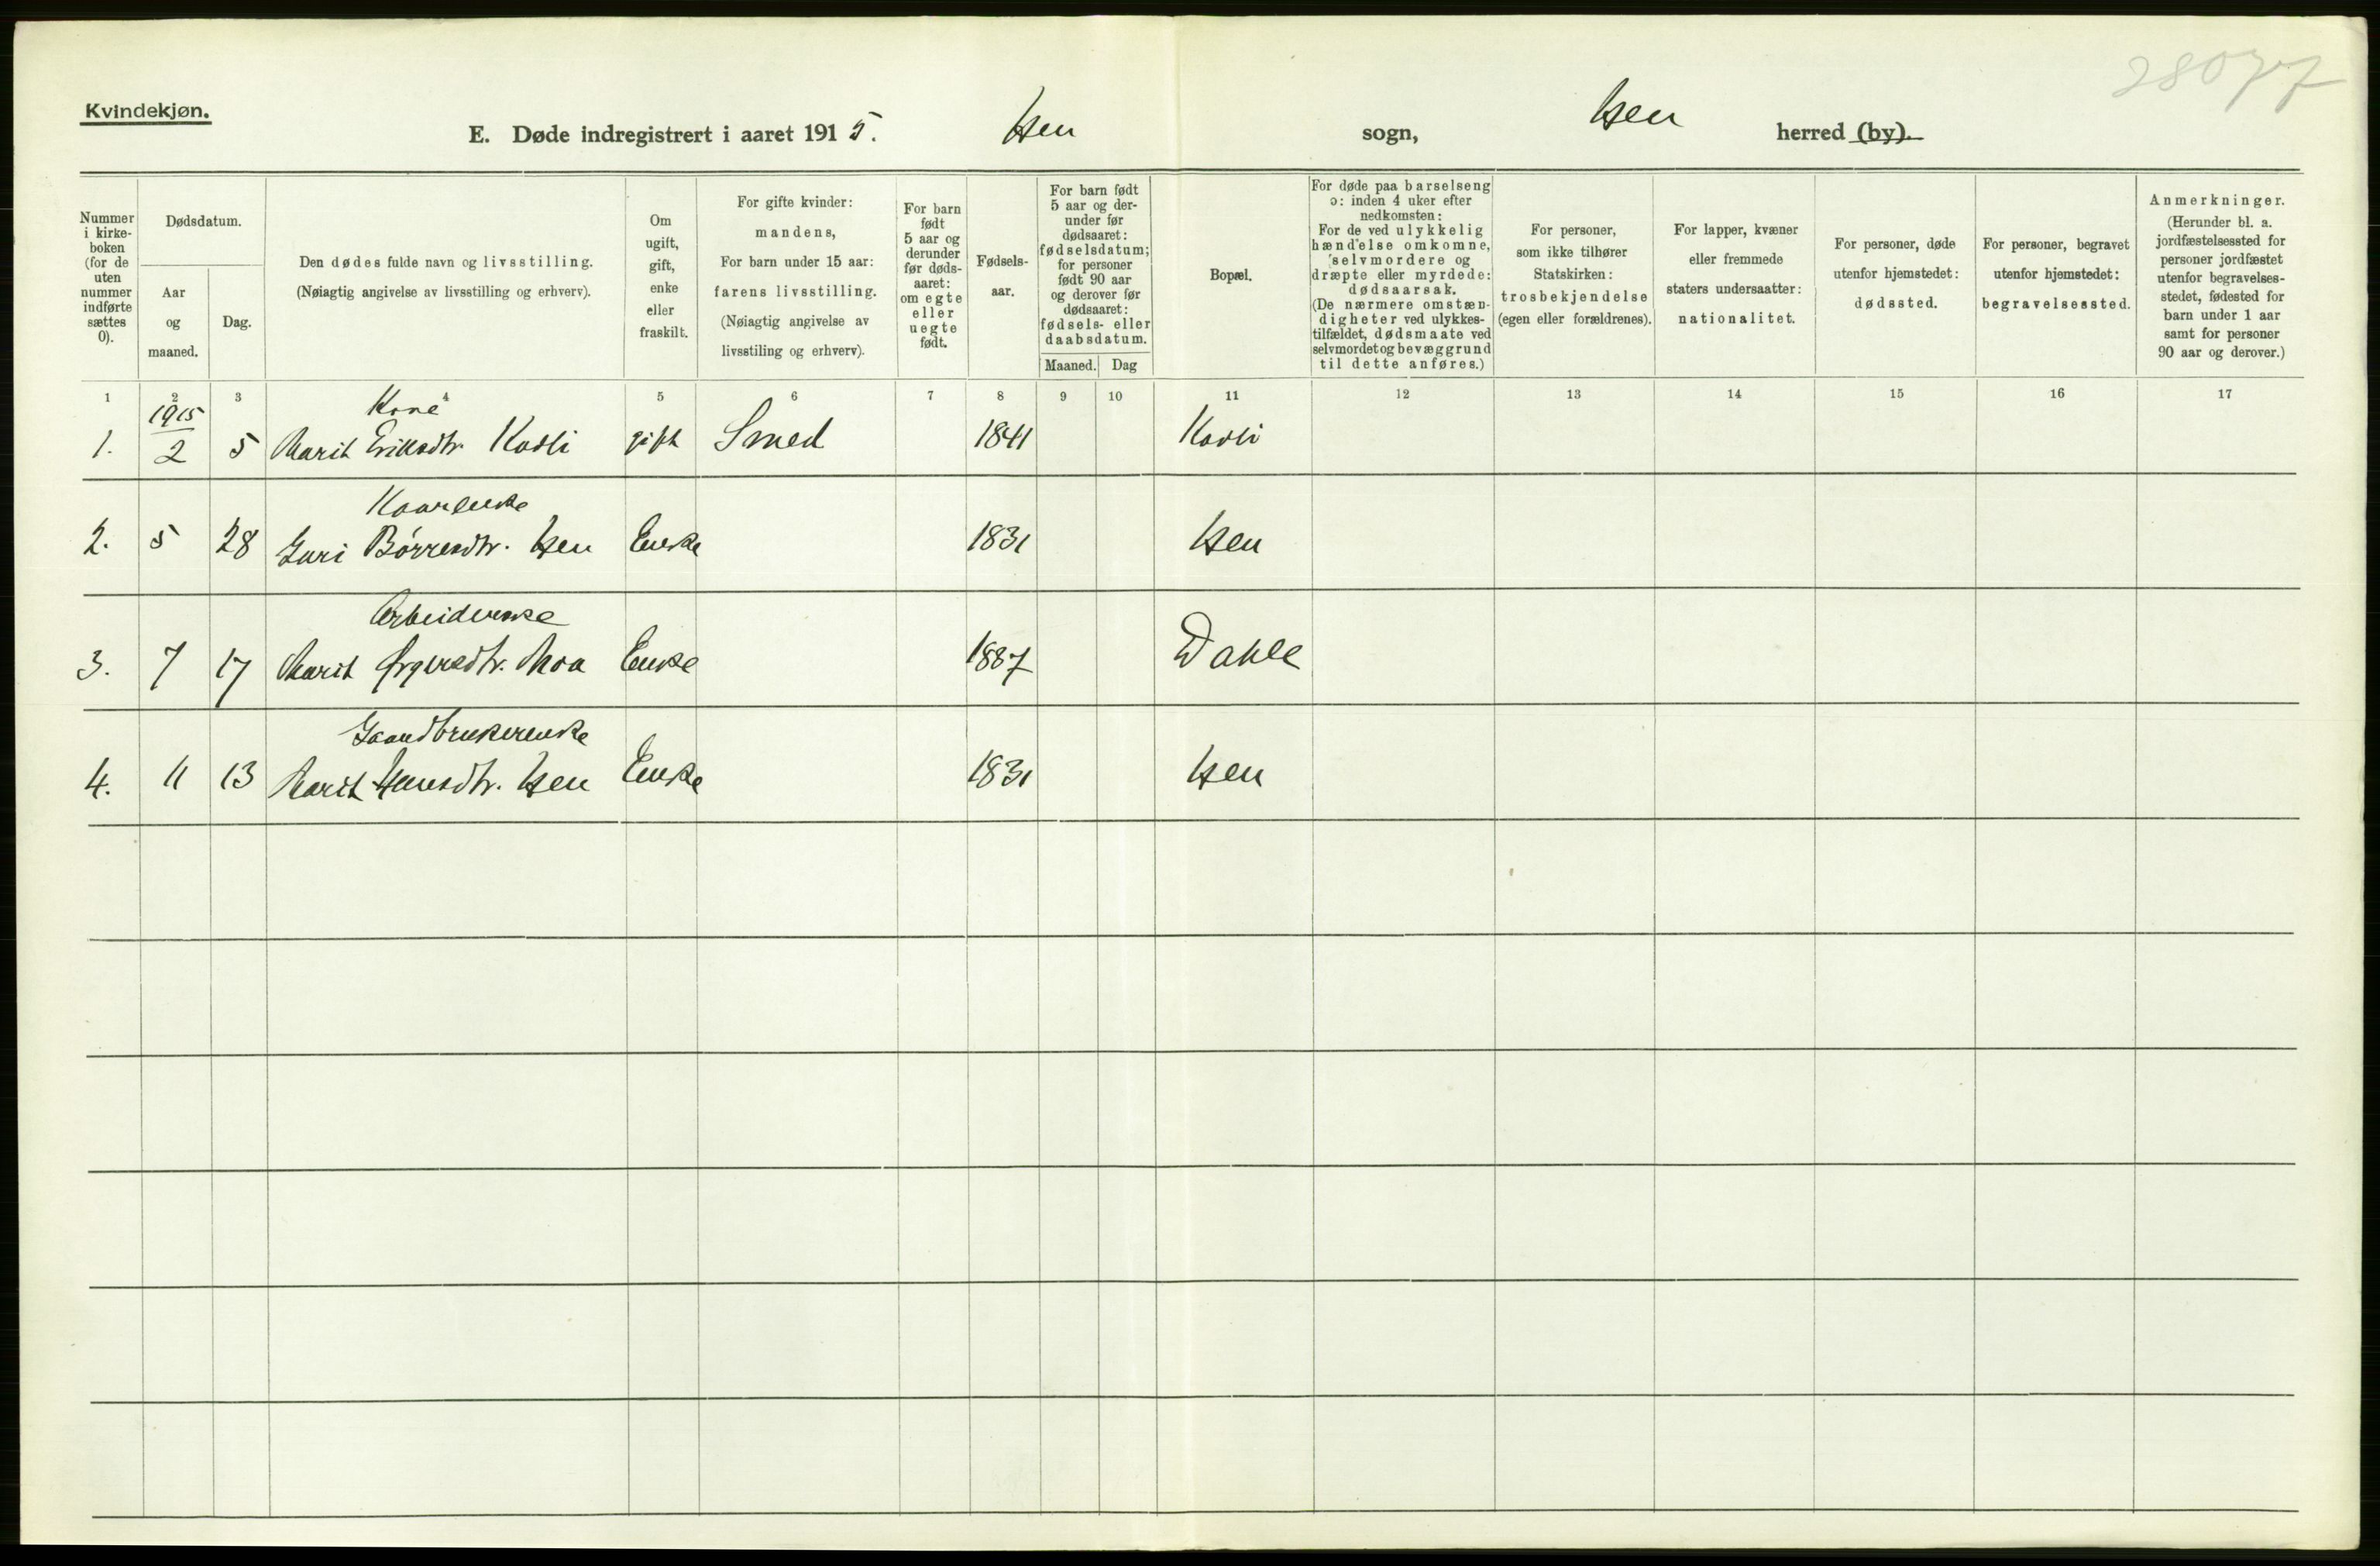 28077
Kvindekjøn.
E. Døde indregistrert i aaret 1915. Hen sogn, Hen herred (by).
Nummer i kirke- boken (for de uten nummer indførte sættes 0).
Dødsdatum.
Aar og maaned.
Dag.
Den dødes fulde navn og livsstilling.
(Nøiagtig angivelse av livsstilling og erhverv).
Om ugift, gift, enke eller fraskilt.
For gifte kvinder:
mandens,
For barn under 15 aar:
farens livsstilling.
(Nøiagtig angivelse av
livsstiling og erhverv).
For barn født 5 aar og derunder før døds- aaret: om egte eller uegte født.
Fødsels- aar.
For barn født 5 aar og der- under før dødsaaret: fødselsdatum; for personer født 90 aar og derover før dødsaaret: fødsels- eller daabsdatum.
Maaned. Dag
Bopæl.
For døde paa barselseng
ɔ: inden 4 uker efter
nedkomsten:
For de ved ulykkelig
hændelse omkomne,
selvmordere og
dræpte eller myrdede:
dødsaarsak.
(De nærmere omstæn-
digheter ved ulykkes-
tilfældet, dødsmaate ved
selvmordet og bevæggrund
til dette anføres.)
For personer,
som ikke tilhører
Statskirken:
trosbekjendelse
(egen eller forældrenes).
For lapper, kvæner
eller fremmede
staters undersaatter:
nationalitet.
For personer, døde
utenfor hjemstedet:
dødssted.
For personer, begravet
utenfor hjemstedet:
begravelsessted.
Anmerkninger.
(Herunder bl. a.
jordfæstelsessted for
personer jordfæstet
utenfor begravelses-
stedet, fødested for
barn under 1 aar
samt for personer
90 aar og derover.)
1 2 3 4 5 6 7 8 9 10 11 12 13 14 15 16 17
1915 Kone
1. 2 5 Marit Eriksdtr. Kavli gift Smed 1841 Kavli
Kaarenke
2. 5 28 Guri Børresdtr. Hen Enke 1831 Hen
Arbeiderenke
3. 7 17 Marit Moa Enke 1887 Dahle
Gaardbrukerenke
4. 11 13 Marit Hansdtr. Hen Enke 1831 Hen